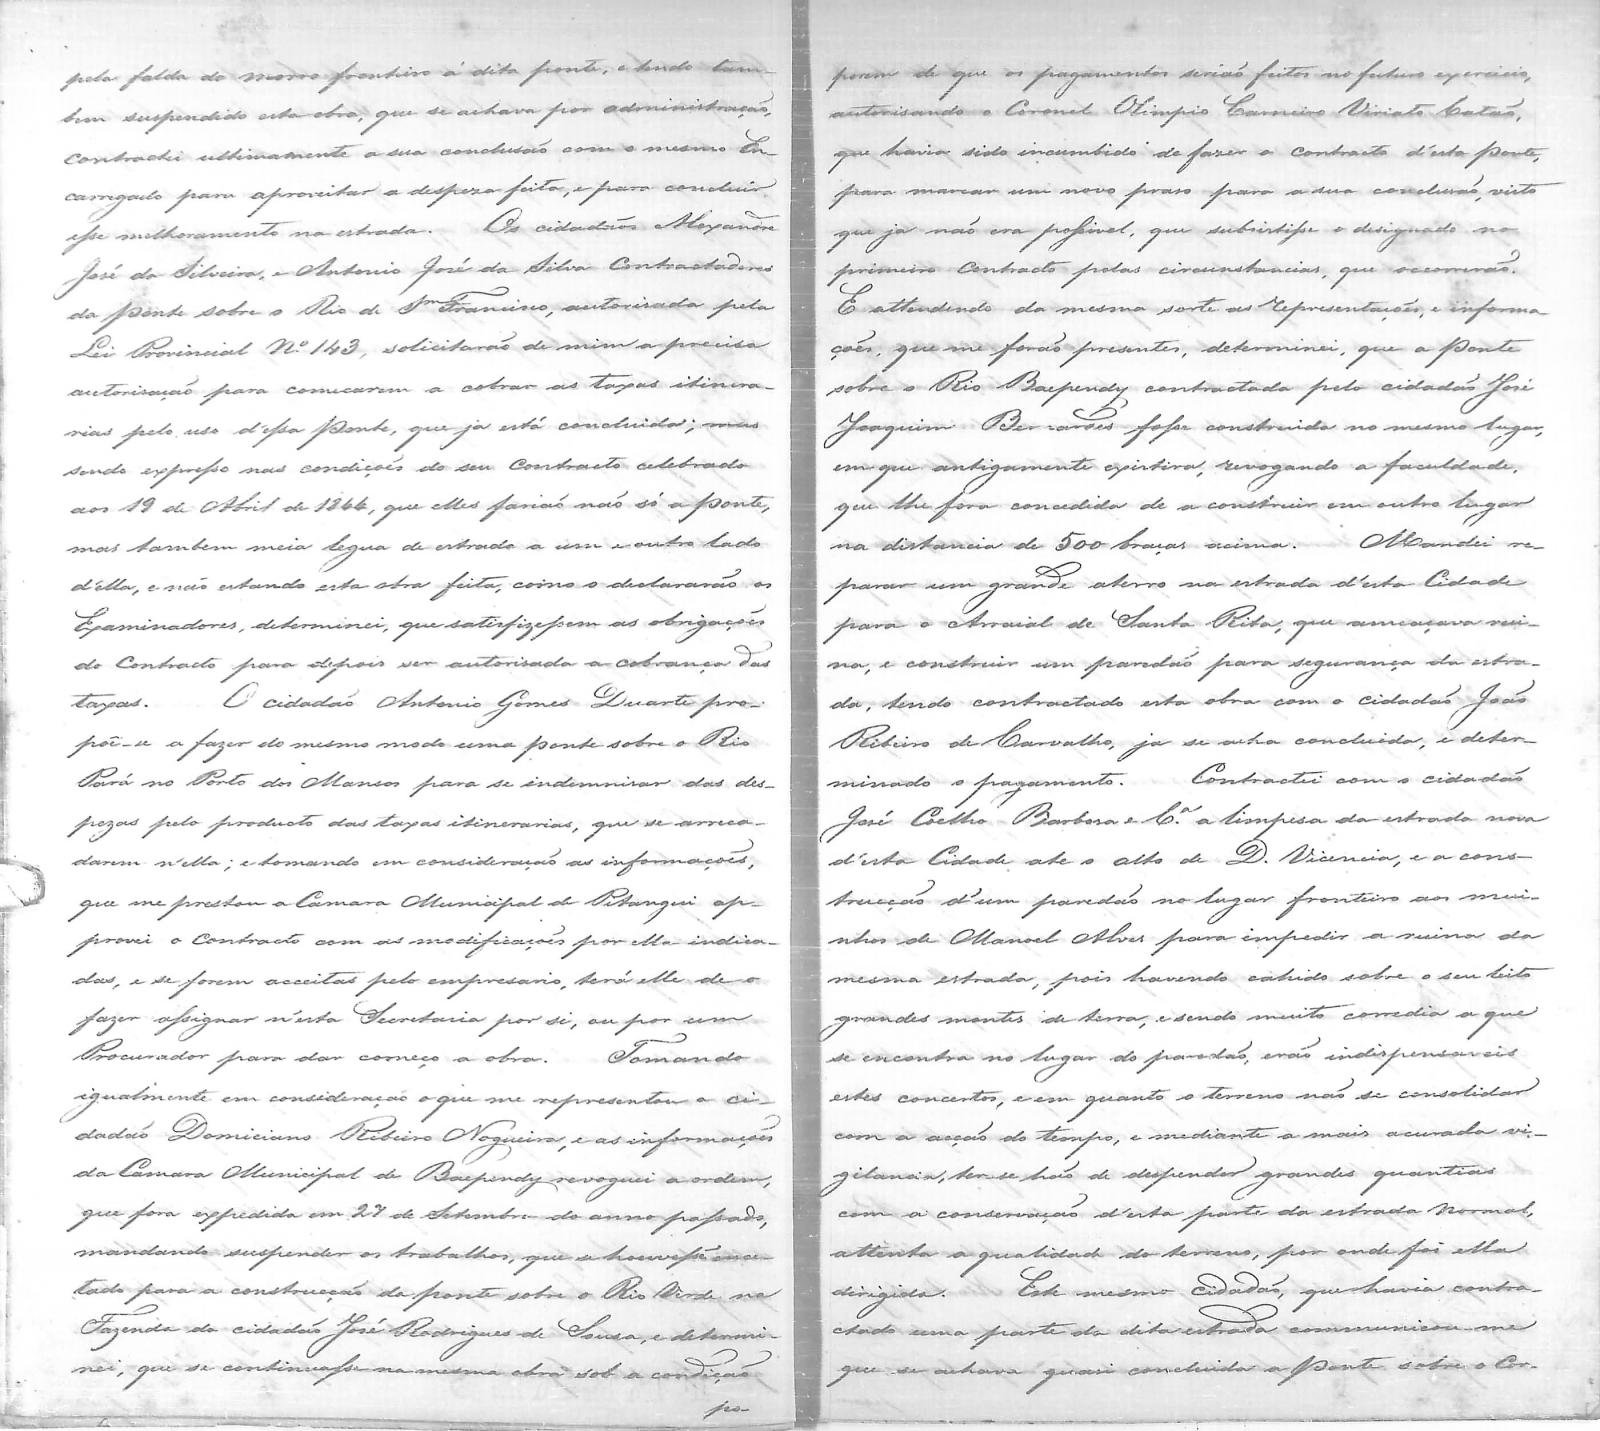 pela falda do morro fronteiro á dita ponte, e tendo tam-
bem suspendido esta obra, que se achava por administração,
contractei ultimamente a sua conclusão com o mesmo En-
carregado para aproveitar a despeza feita, e para concluir
esse melhoramento na estrada. Os cidadãos Alexandre
José da Silveira, e Antonio José da Silva Contractadores
da Ponte sobre o Rio de Sm Francisco, autorisada pela
Lei Provincial No. 143, solicitarão de mim a precisa
autorisação para comecarem a cobrar as taxas itinera-
rias pelo uso d'essa Ponte, que ja está concluida; mas
sendo expresso nas condições do seu Contracto celebrado
aos 19 de Abril de 1844, que elles farião não só a ponte,
mas tambem meia legua de estrada a um e outro lado
d'ella, e não estando esta obra feita, como o declararão os
Examinadores, determinei, que satisfizessem as obrigações
do Contracto para depois ser autorisada a cobrança das
taxas. O cidadão Antonio Gomes Duarte pro-
poē-se a fazer do mesmo modo uma ponte sobre o Rio
Pará no Porto dos Mansos para se indemnisar das des-
pezas pelo producto das taxas itinerarias, que se arreca-
darem n'ella; e tomando em consideração as informações,
que me prestou a Camara Municipal de Pitangui ap-
provei o Contracto com as modificações por ella indica-
das, e se forem acceitas pelo empresario, terá elle de o
fazer assignar n'esta Secretaria por si, ou por um
Procurador para dar começo a obra. Tomando
igualmente em consideração o que me representou o ci-
dadão Domiciano Ribeiro Nogueira, e as informações
da Camara Municipal de Baependy revoguei a ordem,
que fora expedida em 27 de Setembro do anno passado,
mandando suspender os trabalhos, que se houvesse ence-
tado para a construcção da ponte sobre o Rio Verde na
Fazenda do cidadão José Rodrigues de Sousa, e determi-
nei, que se continuasse na mesma obra sob a condição
po-
porem de que os pagamentos serião feitos no futuro exercicio,
autorisando o Coronel Olimpio Carneiro Viriato Catão,
que havia sido incumbido de fazer o contracto d'esta Ponte,
para marcar um novo praso para a sua conclusão, visto
que ja não era possivel, que subsistisse o designado no
primeiro Contracto pelas circunstancias, que occorrerão.
E attendendo da mesma sorte as representações, e informa
ções, que me forão presentes, determinei, que a Ponte
sobre o Rio Baependy contractada pelo cidadão José
Joaquim Bernardes fosse construida no mesmo lugar,
em que antigamente existira, revogando a faculdade,
que lhe fora concedida de a construir em outro lugar
na distancia de 500 braças acima. Mandei re-
parar um grande aterro na estrada d'esta Cidade
para o Arraial de Santa Rita, que ameaçava rui-
na, e construir um paredão para segurança da estra-
da, tendo contractado esta obra com o cidadão João
Ribeiro de Carvalho, ja se acha concluida, e deter-
minado o pagamento. Contractei com o cidadão
José Coelho Barbosa e C.a a limpesa da estrada nova
d'esta Cidade ate o alto de D. Vicencia, e a cons-
trucção d'um paredão no lugar fronteiro aos mui-
nhos de Manoel Alves para impedir a ruina da
mesma estrada, pois havendo cahido sobre o seu leito
grandes montes de terra, e sendo muito corredia a que
se encontra no lugar do paredão, erão indispensaveis
estes concertos, e em quanto o terreno não se consolidar
com a acção do tempo, e mediante a mais acurada vi-
gilancia, ter-se-hão de despender grandes quantias
com a conservação d'esta parte da estrada normal,
attenta a qualidade do terreno, por onde foi ella
dirigida. Este mesmo cidadão, que havia contra-
ctado uma parte da dita estrada communicou-me
que se achava quasi concluida a Ponte sobre o Cor-